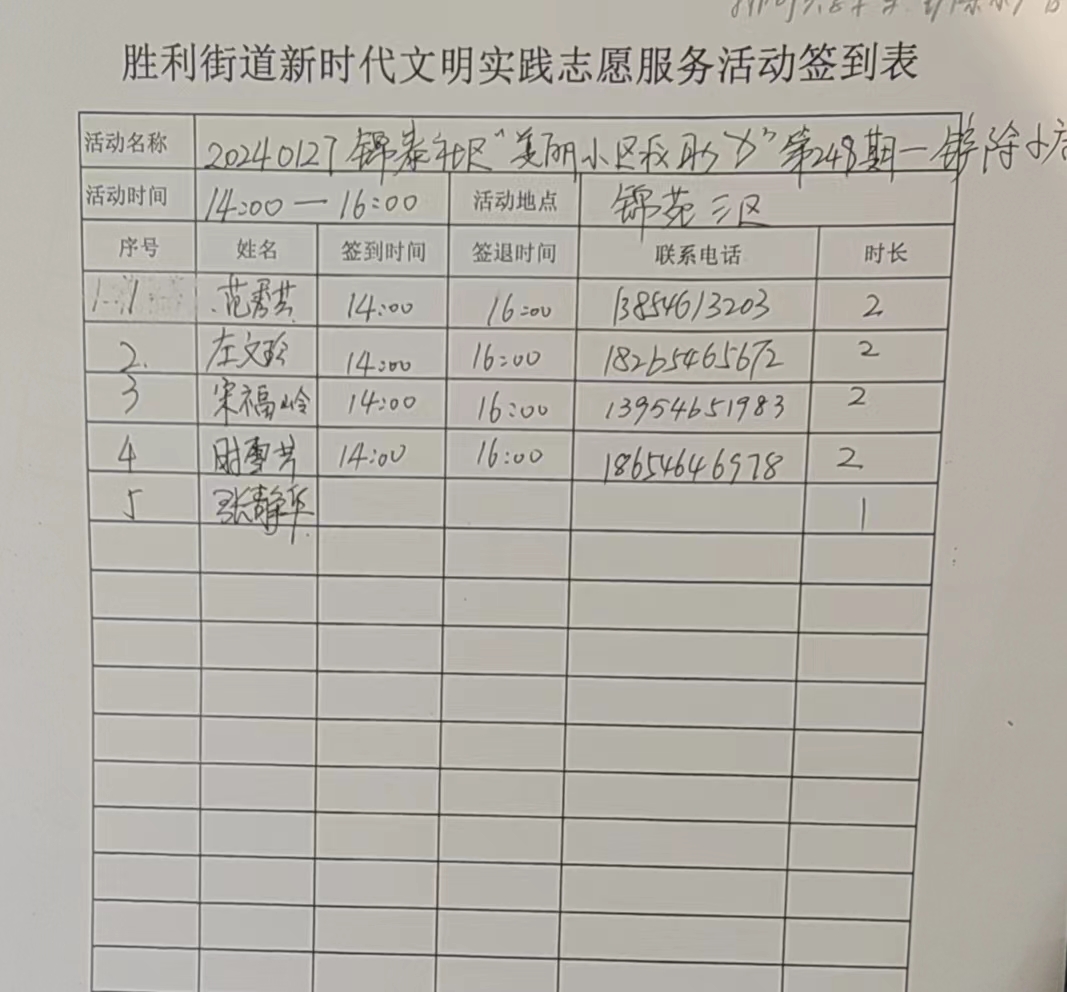 胜利街道新时代文明实践志愿服务活动签到表
活动名称 20240127锦泰社区“美丽小区我助力”第248期一铲除小广
活动时间 14:00—16:00 活动地点 锦苑三区
序号 姓名 签到时间 签退时间 联系电话 时长
1 范秀芸 14:00 16:00 13854613203 2
2. 左文玲 14:00 16:00 18265465672 2
3 宋福岭 14:00 16:00 13954651983 2
4 时雪芳 14:00 16:00 18654646978 2
5 张静华 1